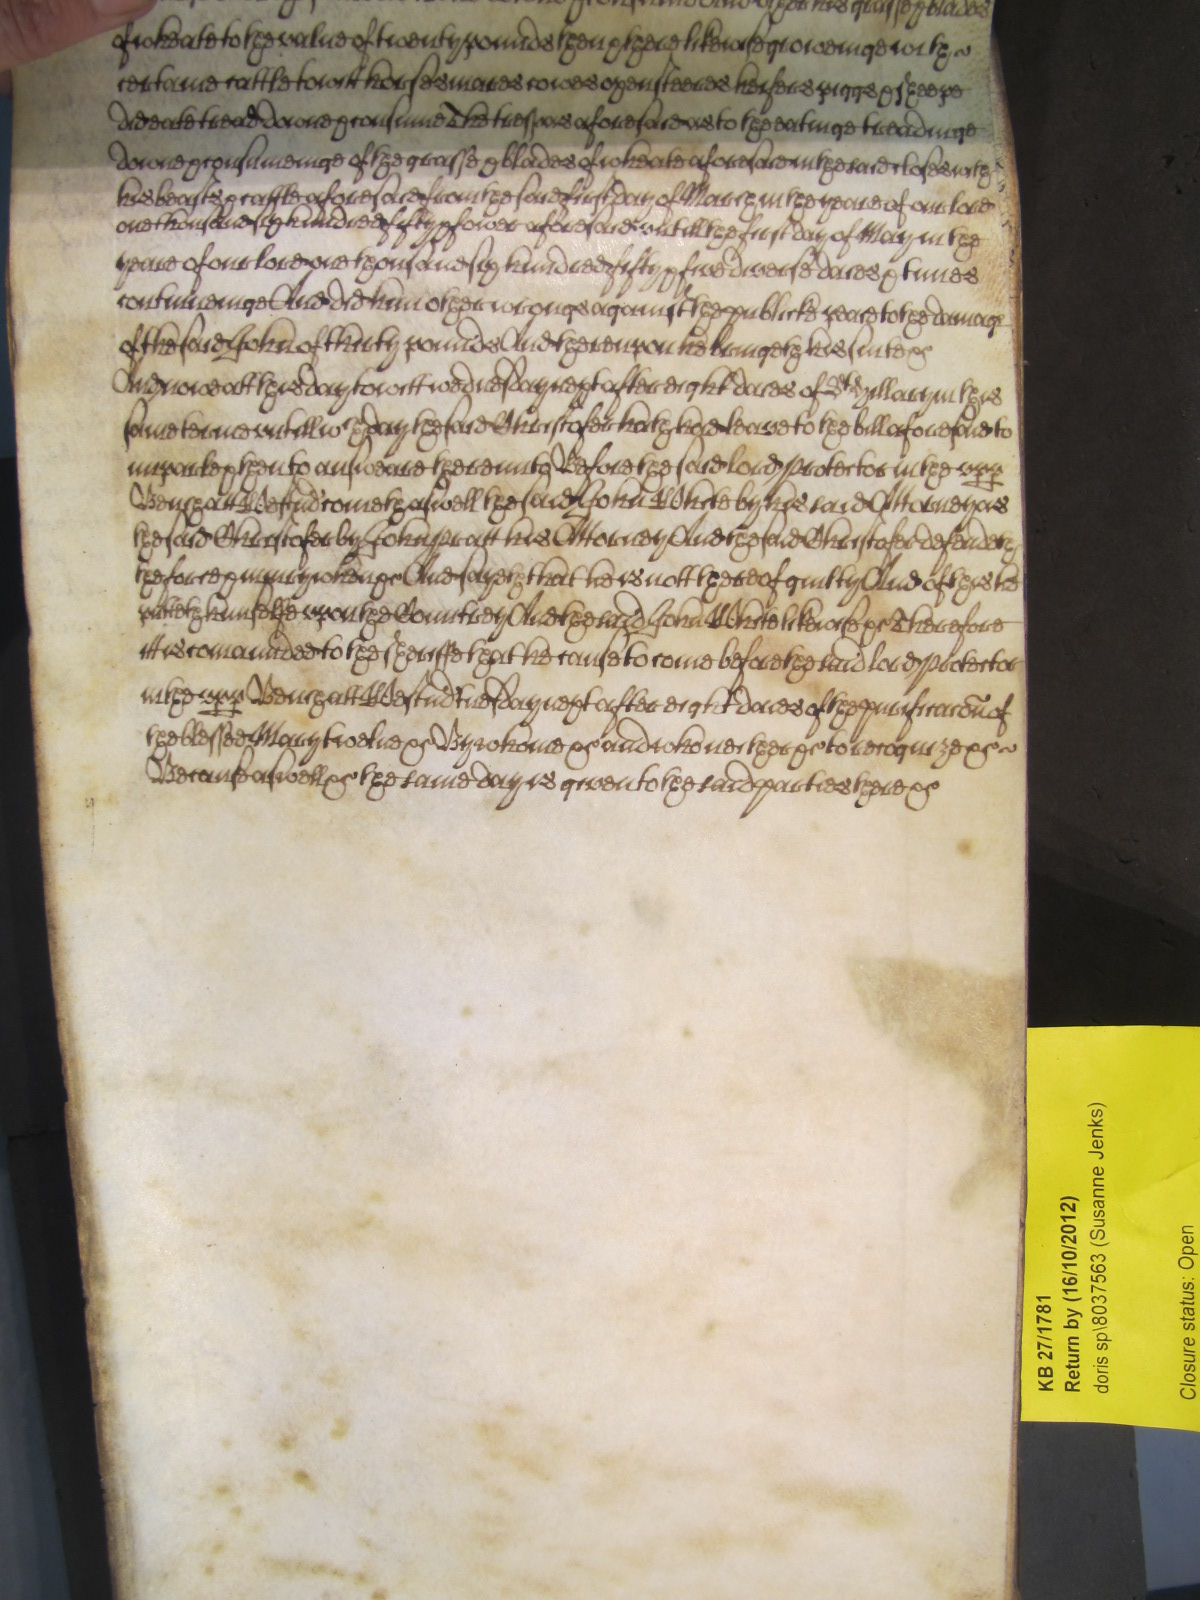 downe & consume And other his grasse & blades
of wheate to the value of twenty pounds then & there likewise groweinge with
certaine cattle towitt horses mares cowes oxen steeres heifers piggs & sheepe
did eate tread downe & consume The trespas aforesaid as to the eatinge treadinge
downe & consumeinge of the grasse & blades of wheate aforesaid in the said closes with
his beasts & cattle aforesaid from the said first day of March in the yeare of our lord
one thousand six hundred fifty & fower aforesaid untill the first day of May in the
yeare of our lord one thousand six hundred fifty & five diverse daies & tymes
continueinge And did him other wronges against the publicke peace to the damage
of the said John of thirty pounds And thereupon he bringeth his suite &c
And nowe att this day towitt wednesday next after eight daies of St Hillary in this
same terme untill wch day the said Christofer hath had leave to the bill aforesaid to
imparle & then to answeare thereunto Before the said lord Protector in the upp
Bench att Westmr come th aswell the said John White by his said Attorney as
the said Christofer by John Pratt his Attorney And the said Christofer defendeth
the force & iniury when &c And sayeth that he is nott thereof guilty And of this he
putteth himselfe upon the Countrey And the said John White likewise &c Therefore
itt is comaunded to the Sheriffe that he cause to come before the said lord Protector
in the upp Bench att Westmr tuesday next after eight daies of the purificacon of
the blessed Mary twelve &c By whome &c and who neither &c to recognize &c
Because aswell &c the same day is given to the said parties there &c
KB 27/1781
Return by (16/10/2012)
doris sp\8037563 (Susanne Jenks)
Closure status: Open